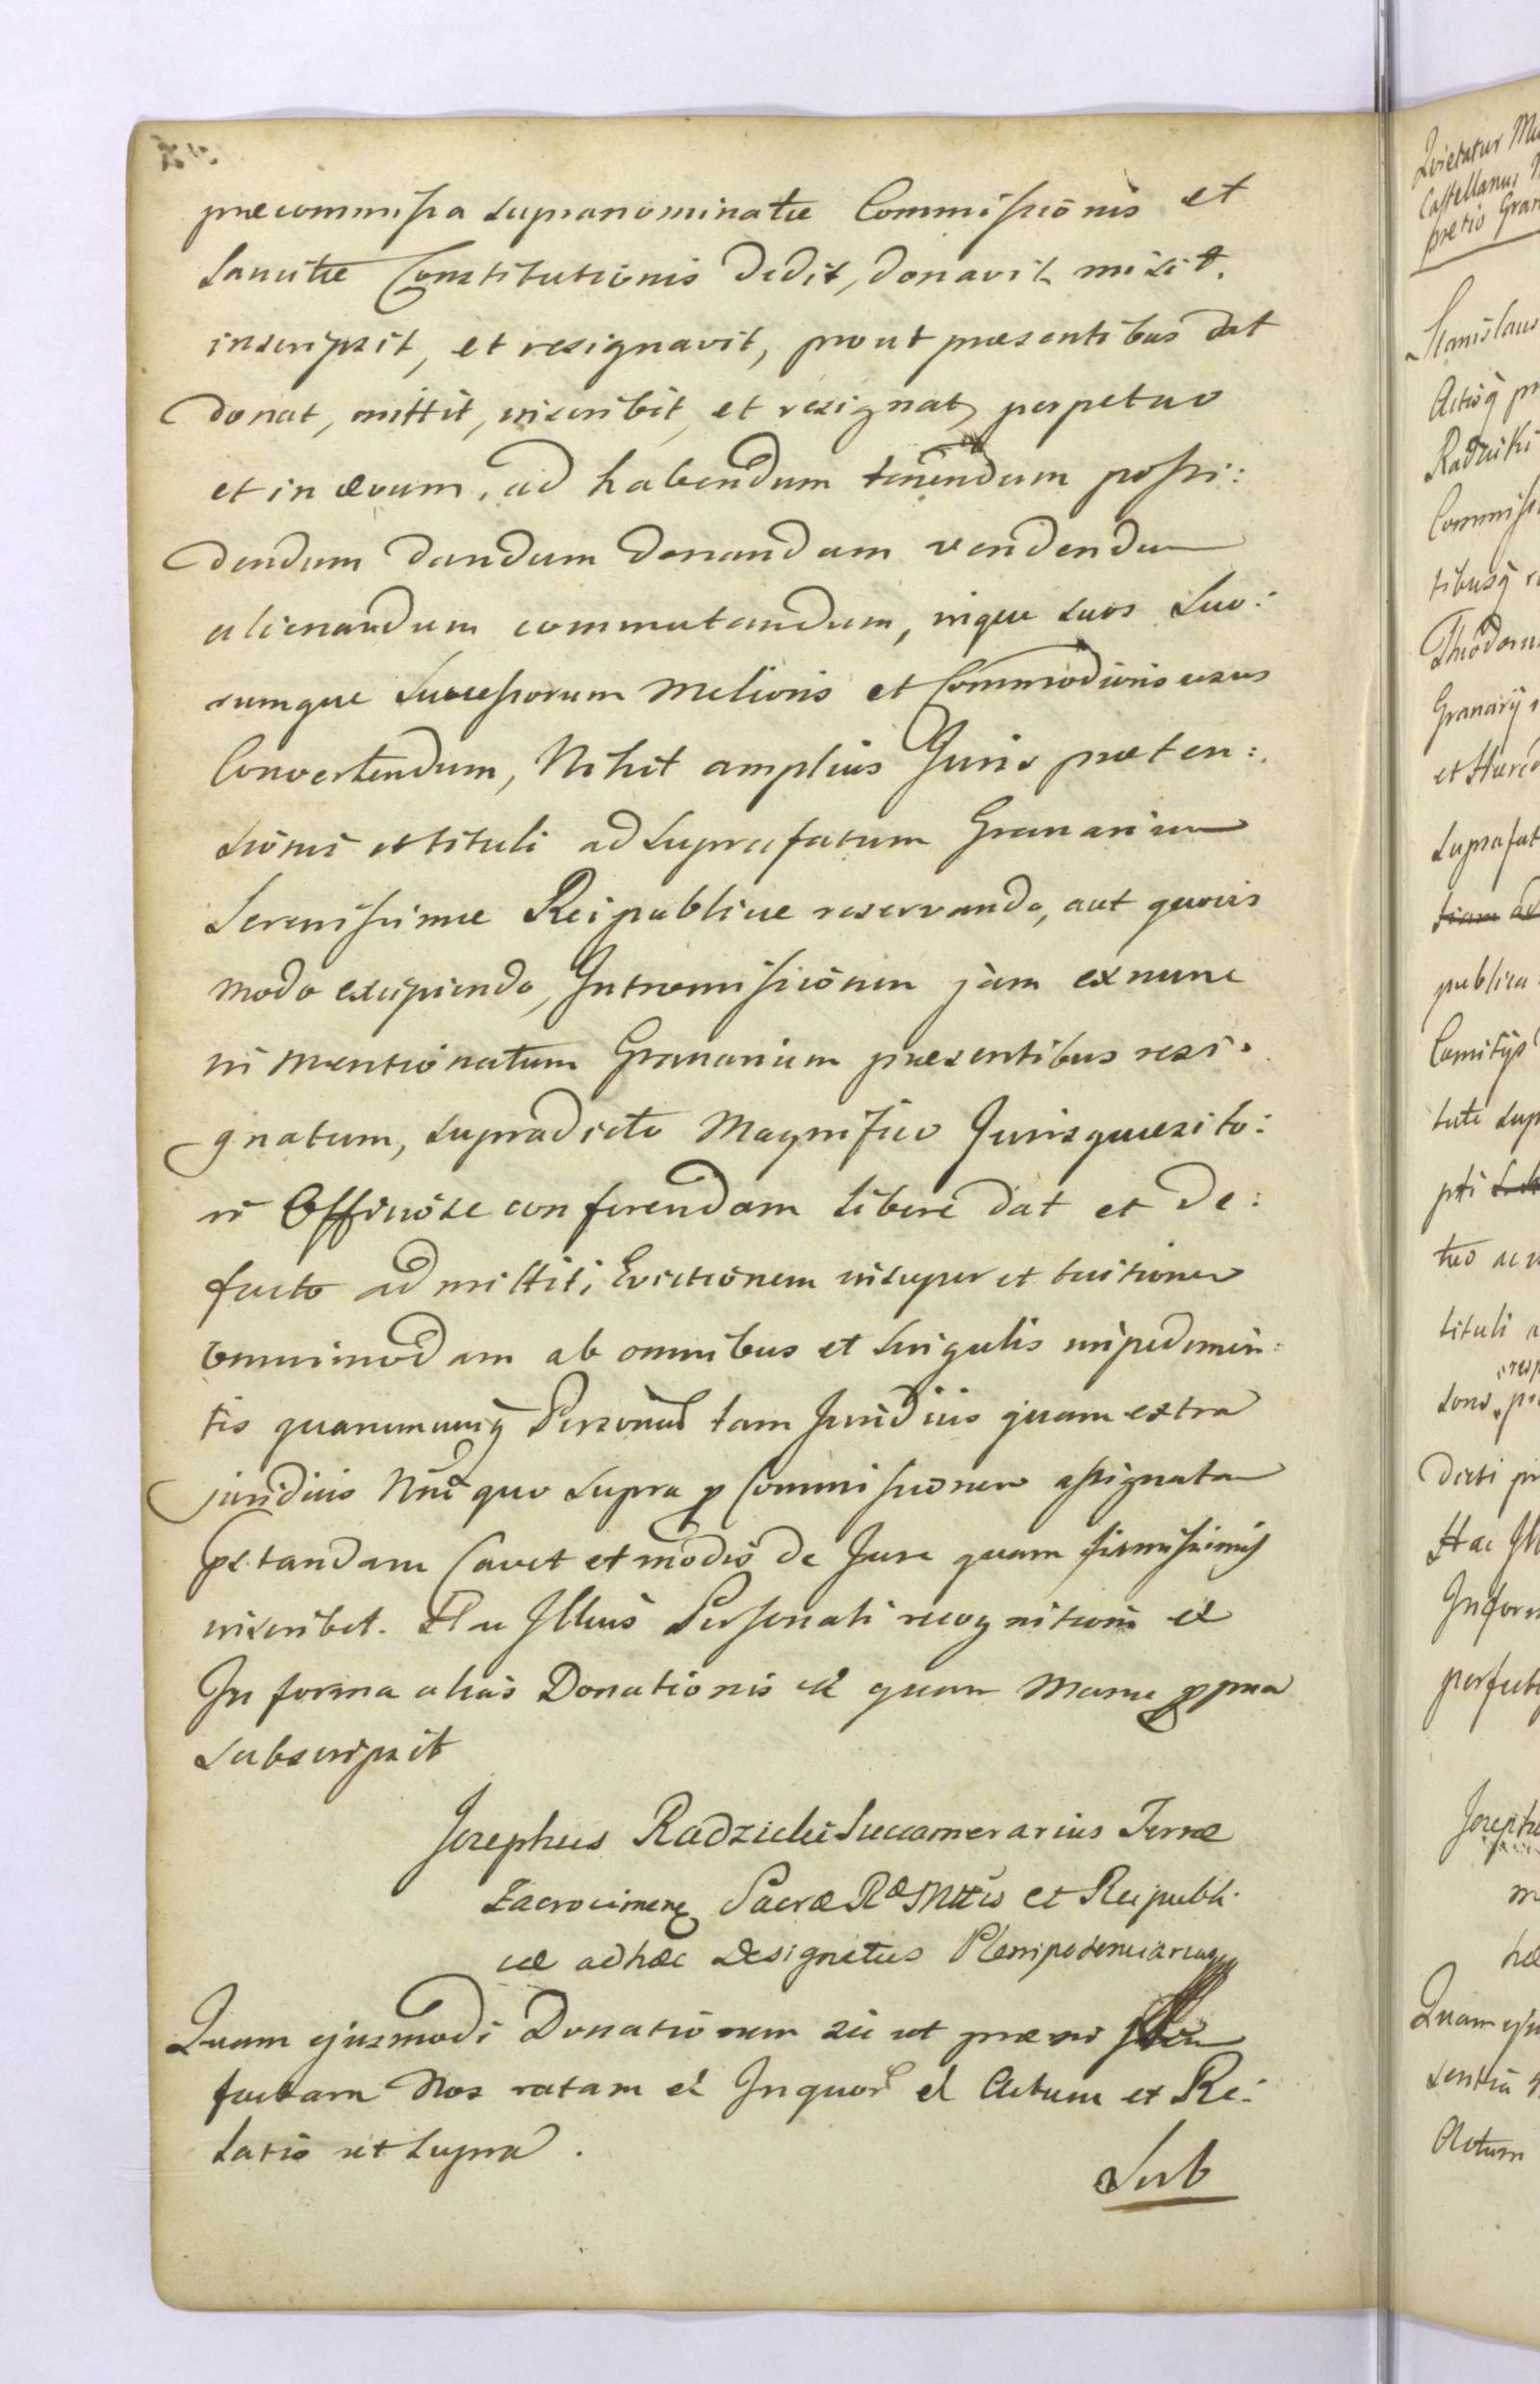 præcommissa supranominatæ Commissionis et
sancitæ Constitutionis dedit, donavit misit.
inscripsit, et resignavit, prout præsentibus dat
donat, mittit, inscribit, et resignat, perpetuo
et in ævum, ad habendum tenendum possi:
dendum dandum donandum vendendum
alienandum commutandum, inque suos suo:
rumque Successorum melioris et Commodioris usus
Convertendum, Nihil amplius Juris præten:
sionis et tituli ad suprafatum Granarium
Serenissimæ Reipublicæ reservando, aut quovis
modo excipiendo, Intromissionem jam ex nunc
in mentionatum Granarium præsentibus resi:
gnatum, supradicto Magnifico Jurisquæsito:
ri Officiose conferendam libere dat et de:
facto admittit; Evictionem insuper et tuitionem
omnimodam ab omnibus et singulis impedimen:
tis quarumcunq Personar tam Juridicis quam extra
juridicis Nne quo supra p Commissionem assignatam
pstandam Cavet et modis de Jure quam firmissimis
inscribet. Hac Illius Personali recognitione et
In forma alias Donationis et quam Manu ppria
subscripsit
Josephus Radzicki Succamerarius Terræ
Zacrocimen Sacræ Ræ Mttis et Reipubli:
cæ ad hæc designatus Plenipotenciarius
Quam ejusmodi Donationem sic ut præmissum
factam Nos ratam et Inquor et Actum et Re:
latio ut supra.
Sub
Quietatur
Castellanus
pretio Gran
Stanislaus
Actisq
Radzicki
Commissi
tibusq
Theodorus
Granarij
et Hæred
suprafat
publica
Comitijs
tute sup
pti
tituli
dicti
Hac Ill
In form
perfect
Josephu
Quam eju
Actum